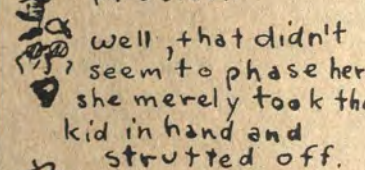 well, that didn't
seem to phase her
she merely took the
kid in hand and
strutted off.